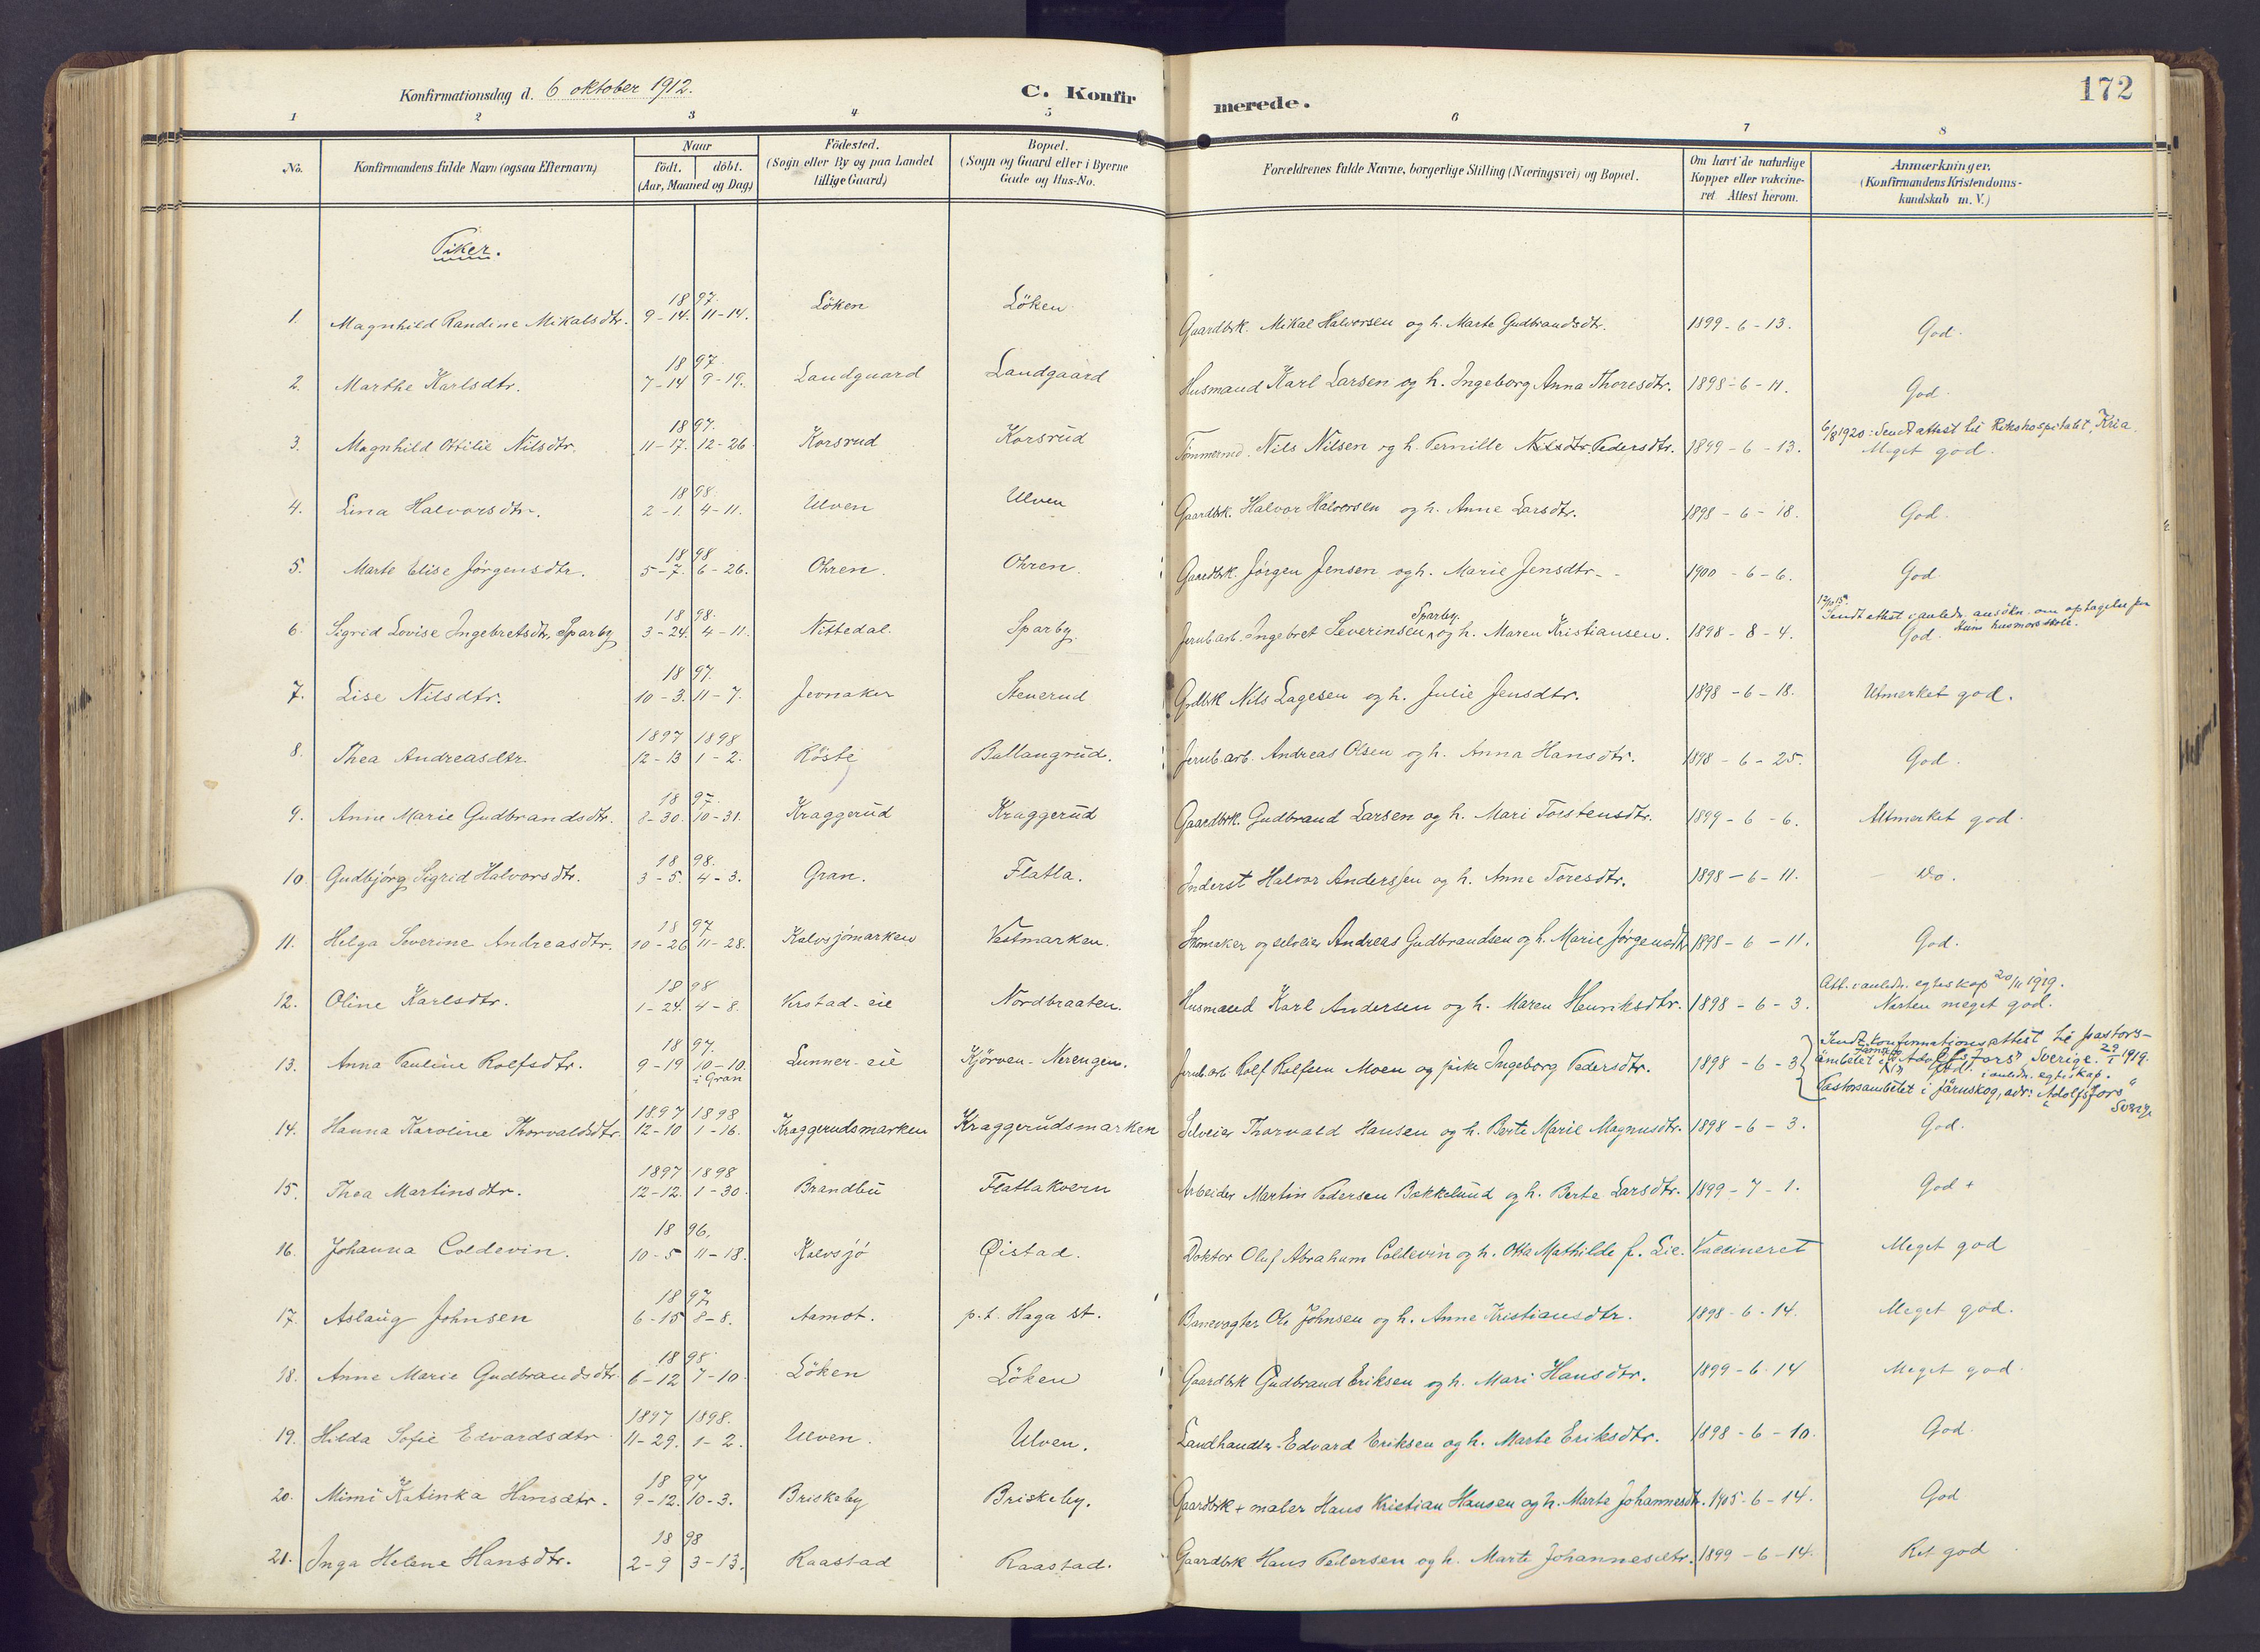 Konfirmationsdag d. 6 oktober 1912. C. Konfirmerede. 172
1 2 3 4 5 6 7 8
No. Konfirmandens fulde Navn (ogsaa Efternavn) Naar födt. döbt. (Aar, Maaned og Dag) Födested. (Sogn eller By og paa Landet tillige Gaard) Bopæl. (Sogn og Gaard eller i Byerne Gade og Hus-No. Forældrenes fulde Navne, borgerlige Stilling (Næringsvei) og Bopæl. Om havt de naturlige Kopper eller vakcineret Attest herom. Anmærkninger. (Konfirmandens Kristendomskundskab m. V.)
Piker.
1. Magnhild Randine Mikalsdtr. 1897. 9-14. 11-14. Löken Löken Gaardbrk. Mikal Halvorsen og h. Marte Gudbrandsdtr. 1899-6-13. God.
2. Marthe Karlsdtr. 1897. 7-14 9-19. Landgaard Landgaard Husmand Karl Larsen og h. Ingeborg Anna Thoresdtr. 1898-6-11. God.
3. Magnhild Ottilie Nilsdtr. 1897. 11-17. 12-26. Korsrud Korsrud Tömmermd. Nils Nilsen og h. Pernille Nilsdtr. Pedersdtr. 1899-6-13. 6/8 1920: Sendt attest til Rikshospitalet, Kria. Meget god.
4. Lina Halvorsdtr. 1898. 2-1. 4-11. Ulven Ulven Gaardbrk. Halvor Halvorsen og h. Anne Larsdtr. 1898-6-18. God.
5. Marte Elise Jörgensdtr. 1898 5-7. 6-26. Ohren. Ohren. Gaardbrk. Jörgen Jensen og h. Marie Jensdtr. 1900-6-6. God.
6. Sigrid Lovise Ingebretsdtr. Sparby 1898. 3-24. 4-11. Nittedal. Sparby Jernb.arb. Ingebret Severinsen Sparby og h. Maren Kristiansen. 1898-8-4. Sendt attest i anledn. ansökn. om optagelse husmorskole. God.
7. Lise Nilsdtr. 1897. 10-3. 11-7. Jevnaker Stenerud Grdbrk Nils Lagesen og h. Julie Jensdtr. 1898-6-18. Utmerket god.
8. Thea Andreasdtr. 1897 1898 12-13 1-2. Röste Ballangrud. Jernb.arb. Andreas Olsen og h. Anna Hansdtr. 1898-6-25. God.
9. Anne Marie Gudbrandsdtr. 1897. 8-30. 10-31. Kraggerud Kraggerud Gaardbrk. Gudbrand Larsen og h. Mari Torstensdtr. 1899-6-6. Utmerket god.
10. Gudbjörg Sigrid Halvorsdtr. 1898. 3-5. 4-3. Gran. Flatla. Inderst Halvor Anderssen og h. Anne Toresdtr. 1898-6-11. Do.
11. Helga Severine Andreasdtr. 1897 10-26 11-28. Kalvsjömarken Vestmarken. Skomaker og selveier Andreas Gudbrandsen og h. Marie Jörgensdtr. 1898-6-11. God.
12. Oline Karlsdtr. 1898 1-24. 4-8. Verstad-eie Nordbraaten. Husmand Karl Andersen og h. Maren Henriksdtr. 1898-6-3. Att. i anledn. egteskap 20/11 1919. Næsten meget god.
13. Anna Pauline Rolfsdtr. 1897. 9-19 10-10. i Gran Lunner-eie Kjörven-Nerengen. Jernb.arb Rolf Rolfsen Moen og pike Ingeborg Pedersdtr. 1898-6-3 Sendt konfirmationsattest til pastorsämbetet i "Adolfsfors" Sverige. 29/1 1919. God. i anledn. egteskap. Pastorsambetet i Järnskog, adr: "Adolfsfors" Sverige
14. Hanna Karoline Thorvaldsdtr. 1897 1898 12-10 1-16. Kraggerudsmarken Kraggerudsmarken Selveier Thorvald Hansen og h. Berte Marie Magnusdtr. 1898-6-3. God.
15. Thea Martinsdtr. 1897 1898 12-12. 1-30. Brandbu Flatlakvern Arbeider Martin Pedersen Bakkelund og h. Berte Larsdtr. 1899-7-1. God +
16. Johanna Coldevin. 1896. 10-5 11-18. Kalvsjö Øistad. Doktor Oluf Abraham Coldevin og h. Otta Mathilde f. Lie. Vaccineret Meget god
17. Aslaug Johnsen 1897. 6-15 8-8. Aamot. p.t. Haga st. Banevogter Ole Johnsen og h. Anne Kristiansdtr. 1898-6-14. Meget god.
18. Anne Marie Gudbrandsdtr. 1898. 6-12 7-10. Löken Löken Gaardbrk Gudbrand Eriksen og h. Mari Hansdtr. 1899-6-14 Meget god.
19. Hilda Sofie Edvardsdtr 1897 1898. 11-29. 1-2. Ulven. Ulven. Landhandler Edvard Eriksen og h. Marte Eriksdtr. 1898-6-10. God.
20. Mimi Katinka Hansdtr. 1897 9-12. 10-3. Briskeby Briskeby. Gaardbrk + maler Hans Kristian Hansen og h. Marte Johannesdtr. 1905-6-14. God
21. Inga Helene Hansdtr. 1898 2-9 3-13. Raastad Raastad. Gaardbrk Hans Pedersen og h. Marte Johannesdtr. 1899-6-14. Ret god